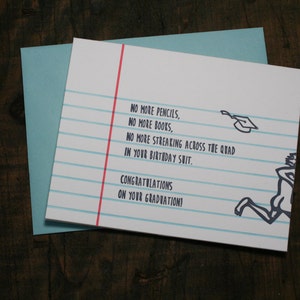 NO MORE PENCILS,
NO MORE BOOKS,
NO MORE STREAKING ACROSS THE QUAD
IN YOUR BIRTHDAY SUIT.
CONGRATULATIONS
ON YOUR GRADUATION!